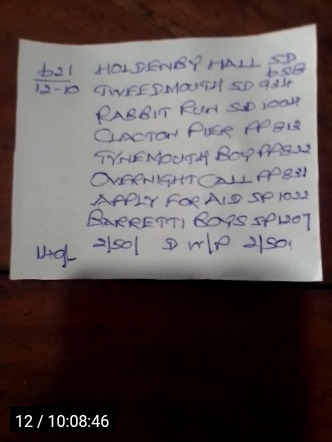 b21 HOLDENBY HALL SD 658
12-10 TWEEDMOUTH SD 934
RABBIT RUN SD 1004
CLACTON PIER PP 812
TYNEMOUTH BOY PP 822
OVERNIGHT CALL PP 831
APPLY FOR AID SP 1022
BARRETTI BOYS SP 1207
2/50/ D W/P 2/50/
12 / 10:08:46